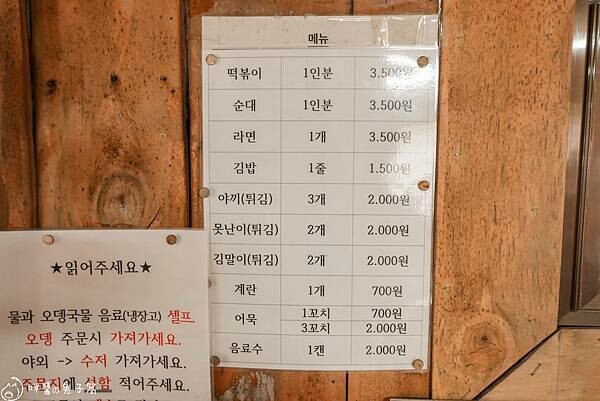 메뉴
떡볶이 1인분 3.500원
순대 1인분 3.500원
라면 1개 3.500원
김밥 1줄 1.500원
야끼(튀김) 3개 2.000원
못난이(튀김) 2개 2.000원
김말이(튀김) 2개 2.000원
계란 1개 700원
어묵 1꼬치 700원
3꼬치 2.000원
음료수 1캔 2.000원
★읽어주세요★
물과 오뎅국물 음료(냉장고) 셀프
오뎅 주문시 가져가세요.
야외 -> 수저 가져가세요.
주문지에 적어주세요.